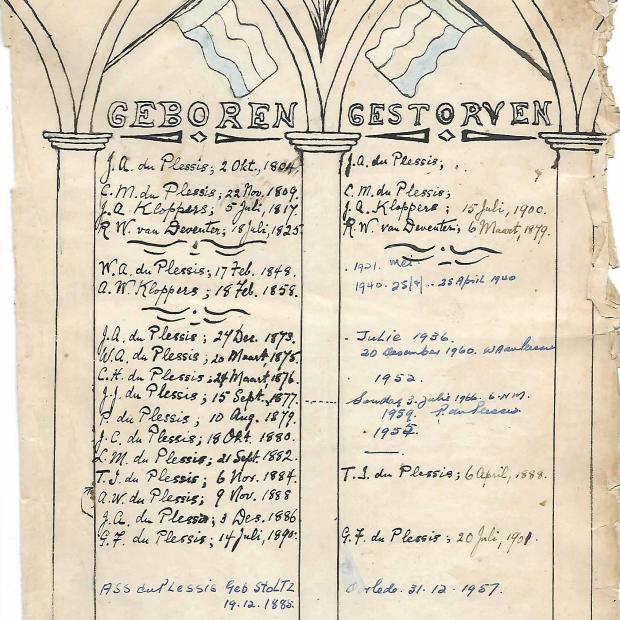 GEBOREN
J. A. du Plessis; 2 Okt., 1804,
C. M. du Plessis; 22 Nov. 1809.
J. A. Kloppers; 5 Juli, 1817.
R. W. van Deventer; 18 Juli, 1825
W. A. du Plessis; 17 Feb. 1848.
A. W. Kloppers; 18 Feb. 1858.
J. A. du Plessis; 27 Des. 1873.
W. A. du Plessis; 20 Maart, 1875.
C. H. du Plessis; 24 Maart, 1876.
J. J. du Plessis; 15 Sept. 1877.
P. du Plessis; 10 Aug. 1879.
J. C. du Plessis; 18 Okt. 1880.
L. M. du Plessis; 21 Sept. 1882.
T. I. du Plessis; 6 Nov. 1884.
A. W. du Plessis; 9 Nov. 1888
J. A. du Plessis; 3 Des. 1886
G. F. du Plessis; 14 Juli, 1890.
ASS du PLessis Geb StoLTZ
19.12.1885.
GESTORVEN
J. A. du Plessis;
C. M. du Plessis;
J. A. Kloppers; 15 Juli, 1900.
R. W. van Deventer; 6 Maart 1879.
1921. mei
1940. 25/4 .. 25 April 1940
Julie 1936.
20 Desember 1960. WA du Plessis
1952.
Sondag 3. Julie 1966. 6. N.M.
1959. P. du Plessis
1955.
T. I. du Plessis; 6 April, 1888.
G. F. du Plessis; 20 Juli, 1901.
Oorlede. 31.12.1957.